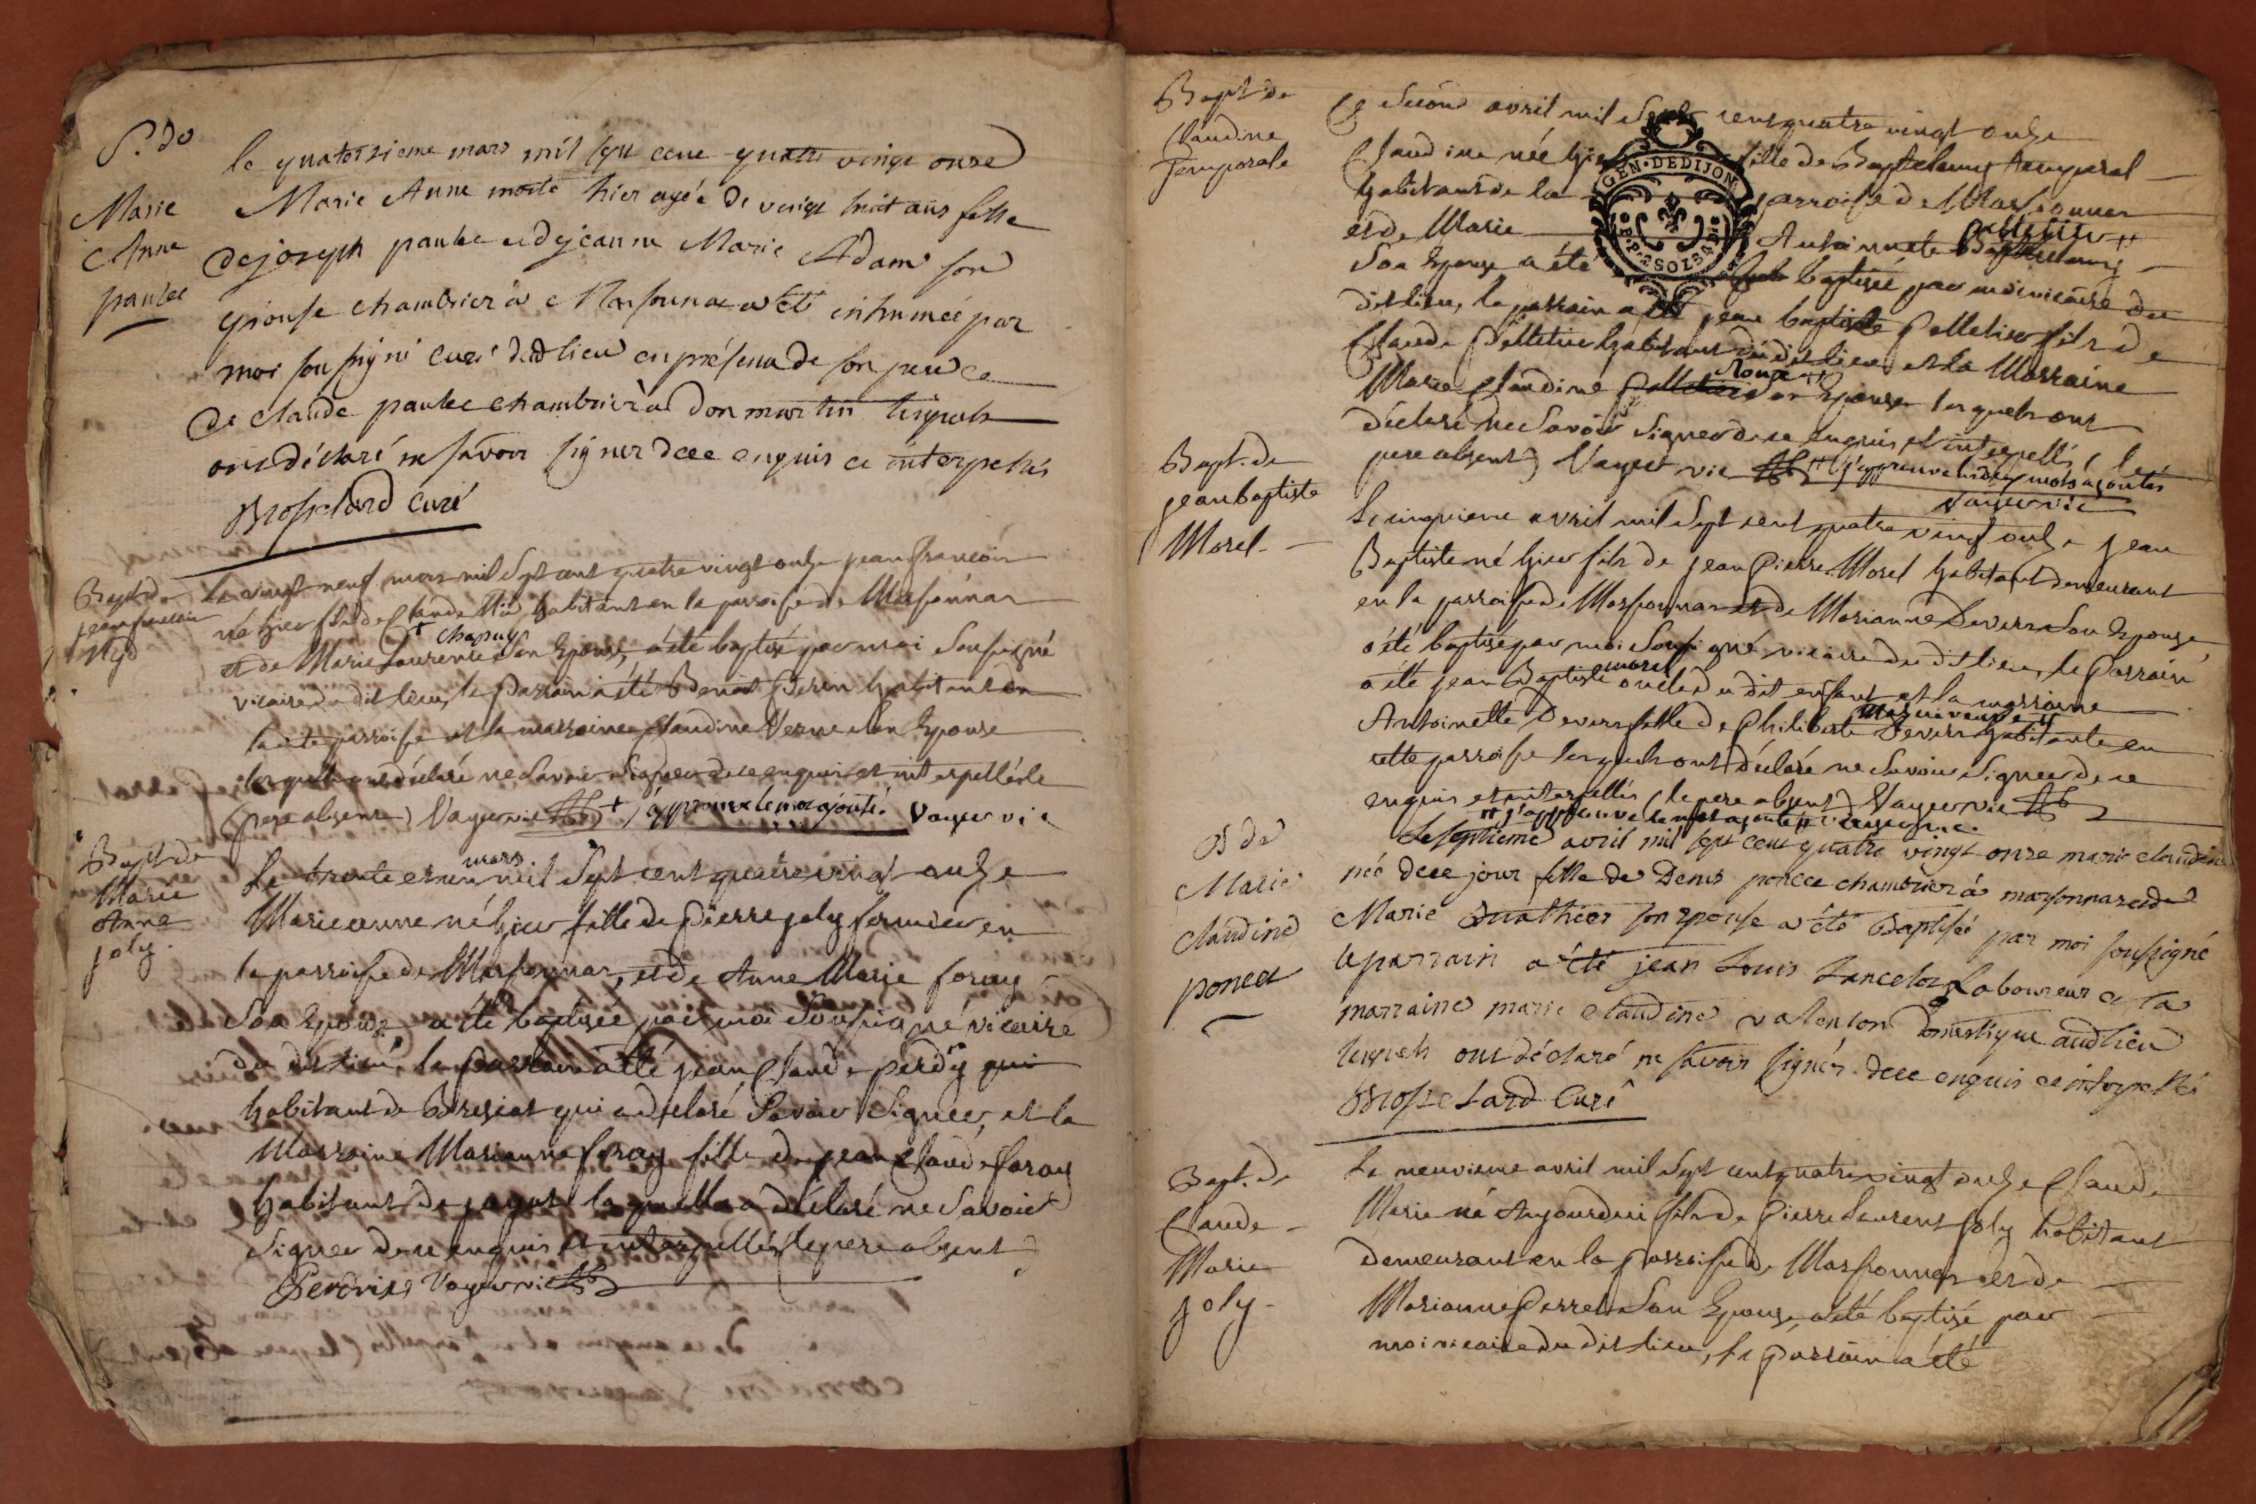 S. de
Marie
Anne
paulce
le quatorzieme mars mil sept cent quatre vingt onze
Marie Anne morte hier agée de vingt huit ans fille
de joseph paulce et de jeanne Marie Adam son
epouse chambrier à Marsonnas a été inhumée par
moi soussigné curé dud lieu en présence de son pere ce
de claude paulce chambrier à don martin lesquels
ont déclaré ne savoir signer de ce enquis et interpellés
Brosselard Curé
Bapt. de
jean francois
Myd
Le vingt neuf mars mil sept cent quatre vingt onze jean francois
né hier fils de Claude habitant en la parroisse de Marsonnas
+ chapuy
et de Marie Laurence son Epouse, a été baptisé par moi soussigné
vicaire du dit lieu, le parrain a été Benoit Perin habitant en
la dite parroisse et la marraine Claudine Verne son Epouse
lesquels ont déclaré ne savoir signer de ce enquis et interpellés le
(pere absent) Vayer vic + j'approuve le mot ajouté. Vayer vic
Bapt de
Marie
Anne
joly.
mars
Le trente et un mil sept cent quatre vingt onze
Marie anne née hier fille de Pierre joly fermier en
la parroisse de Marsonnas, et de Anne Marie foray
son Epouse a été baptisée par moi soussigné vicaire
du dit lieu, le parrain a été jean Claude perdrix qui
habitant de Bresiat qui a déclaré savoir signer, et la
Marraine Marianne foray fille de jean Claude foray
habitant de jayat laquelle a déclaré ne savoir
signer de ce enquis et interpellés (le pere absent)
Perdrix Vayer vic
Bapt de
Claudine
Temporale
Le second avril mil sept cent quatre vingt onze
Claudine née hier fille de Barthelemy temporal
GEN. DE DIJON
habitant de la parroisse de Marsonnas
pelletier ++
et de Marie Antoinette
son Epouse a été baptisée par moi vicaire du
dit lieu, le parrain a été jean baptiste Pelletier fils de
Claude Pelletier habitant du dit lieu et la Marraine
Marie Claudine son Epouse lesquels ont
déclaré ne savoir signer de ce enquis et interpellés, (le
pere absent) Vayer vic ++ j'approuve les deux mots ajoutés
Vayer vic
Bapt. de
jean baptiste
Morel
Le cinquieme avril mil sept cent quatre vingt onze jean
Baptiste né hier fils de jean Pierre Morel habitant demeurant
en la parroisse de Marsonnas et de Marianne Devers son Epouse
a été baptisé par moi soussigné vicaire du dit lieu, le Parrain
morel
a été jean Baptiste oncle du dit enfant et la marraine
Antoinette Devers fille de Philiberte Devers habitante en
cette parroisse lesquels ont déclaré ne savoir signer de ce
enquis et interpellés (le pere absent) Vayer vic
++ j'approuve le mot ajouté ++ Vayer vic.
B de
Marie
Claudine
poncet
Le septieme avril mil sept cent quatre vingt onze marie claudine
née de ce jour fille de Denis poncet chambrier à marsonnas et de
Marie Buathier son epouse a été Baptisée par moi soussigné
le parrain a été jean Louis Lancelot Laboureur et la
marraine marie claudine valenson domestique aud lieu
lesquels ont déclaré ne savoir signer de ce enquis et interpellé
Brosselard Curé
Bapt. de
Claude
Marie
joly
Le neuvieme avril mil sept cent quatre vingt onze Claude
Marie né Aujourdui fils de Pierre Laurent joly habitant
demeurant en la Parroisse de Marsonnas et de
Marianne Perret son Epouse, a été baptisé par
moi vicaire du dit lieu, le parrain a été